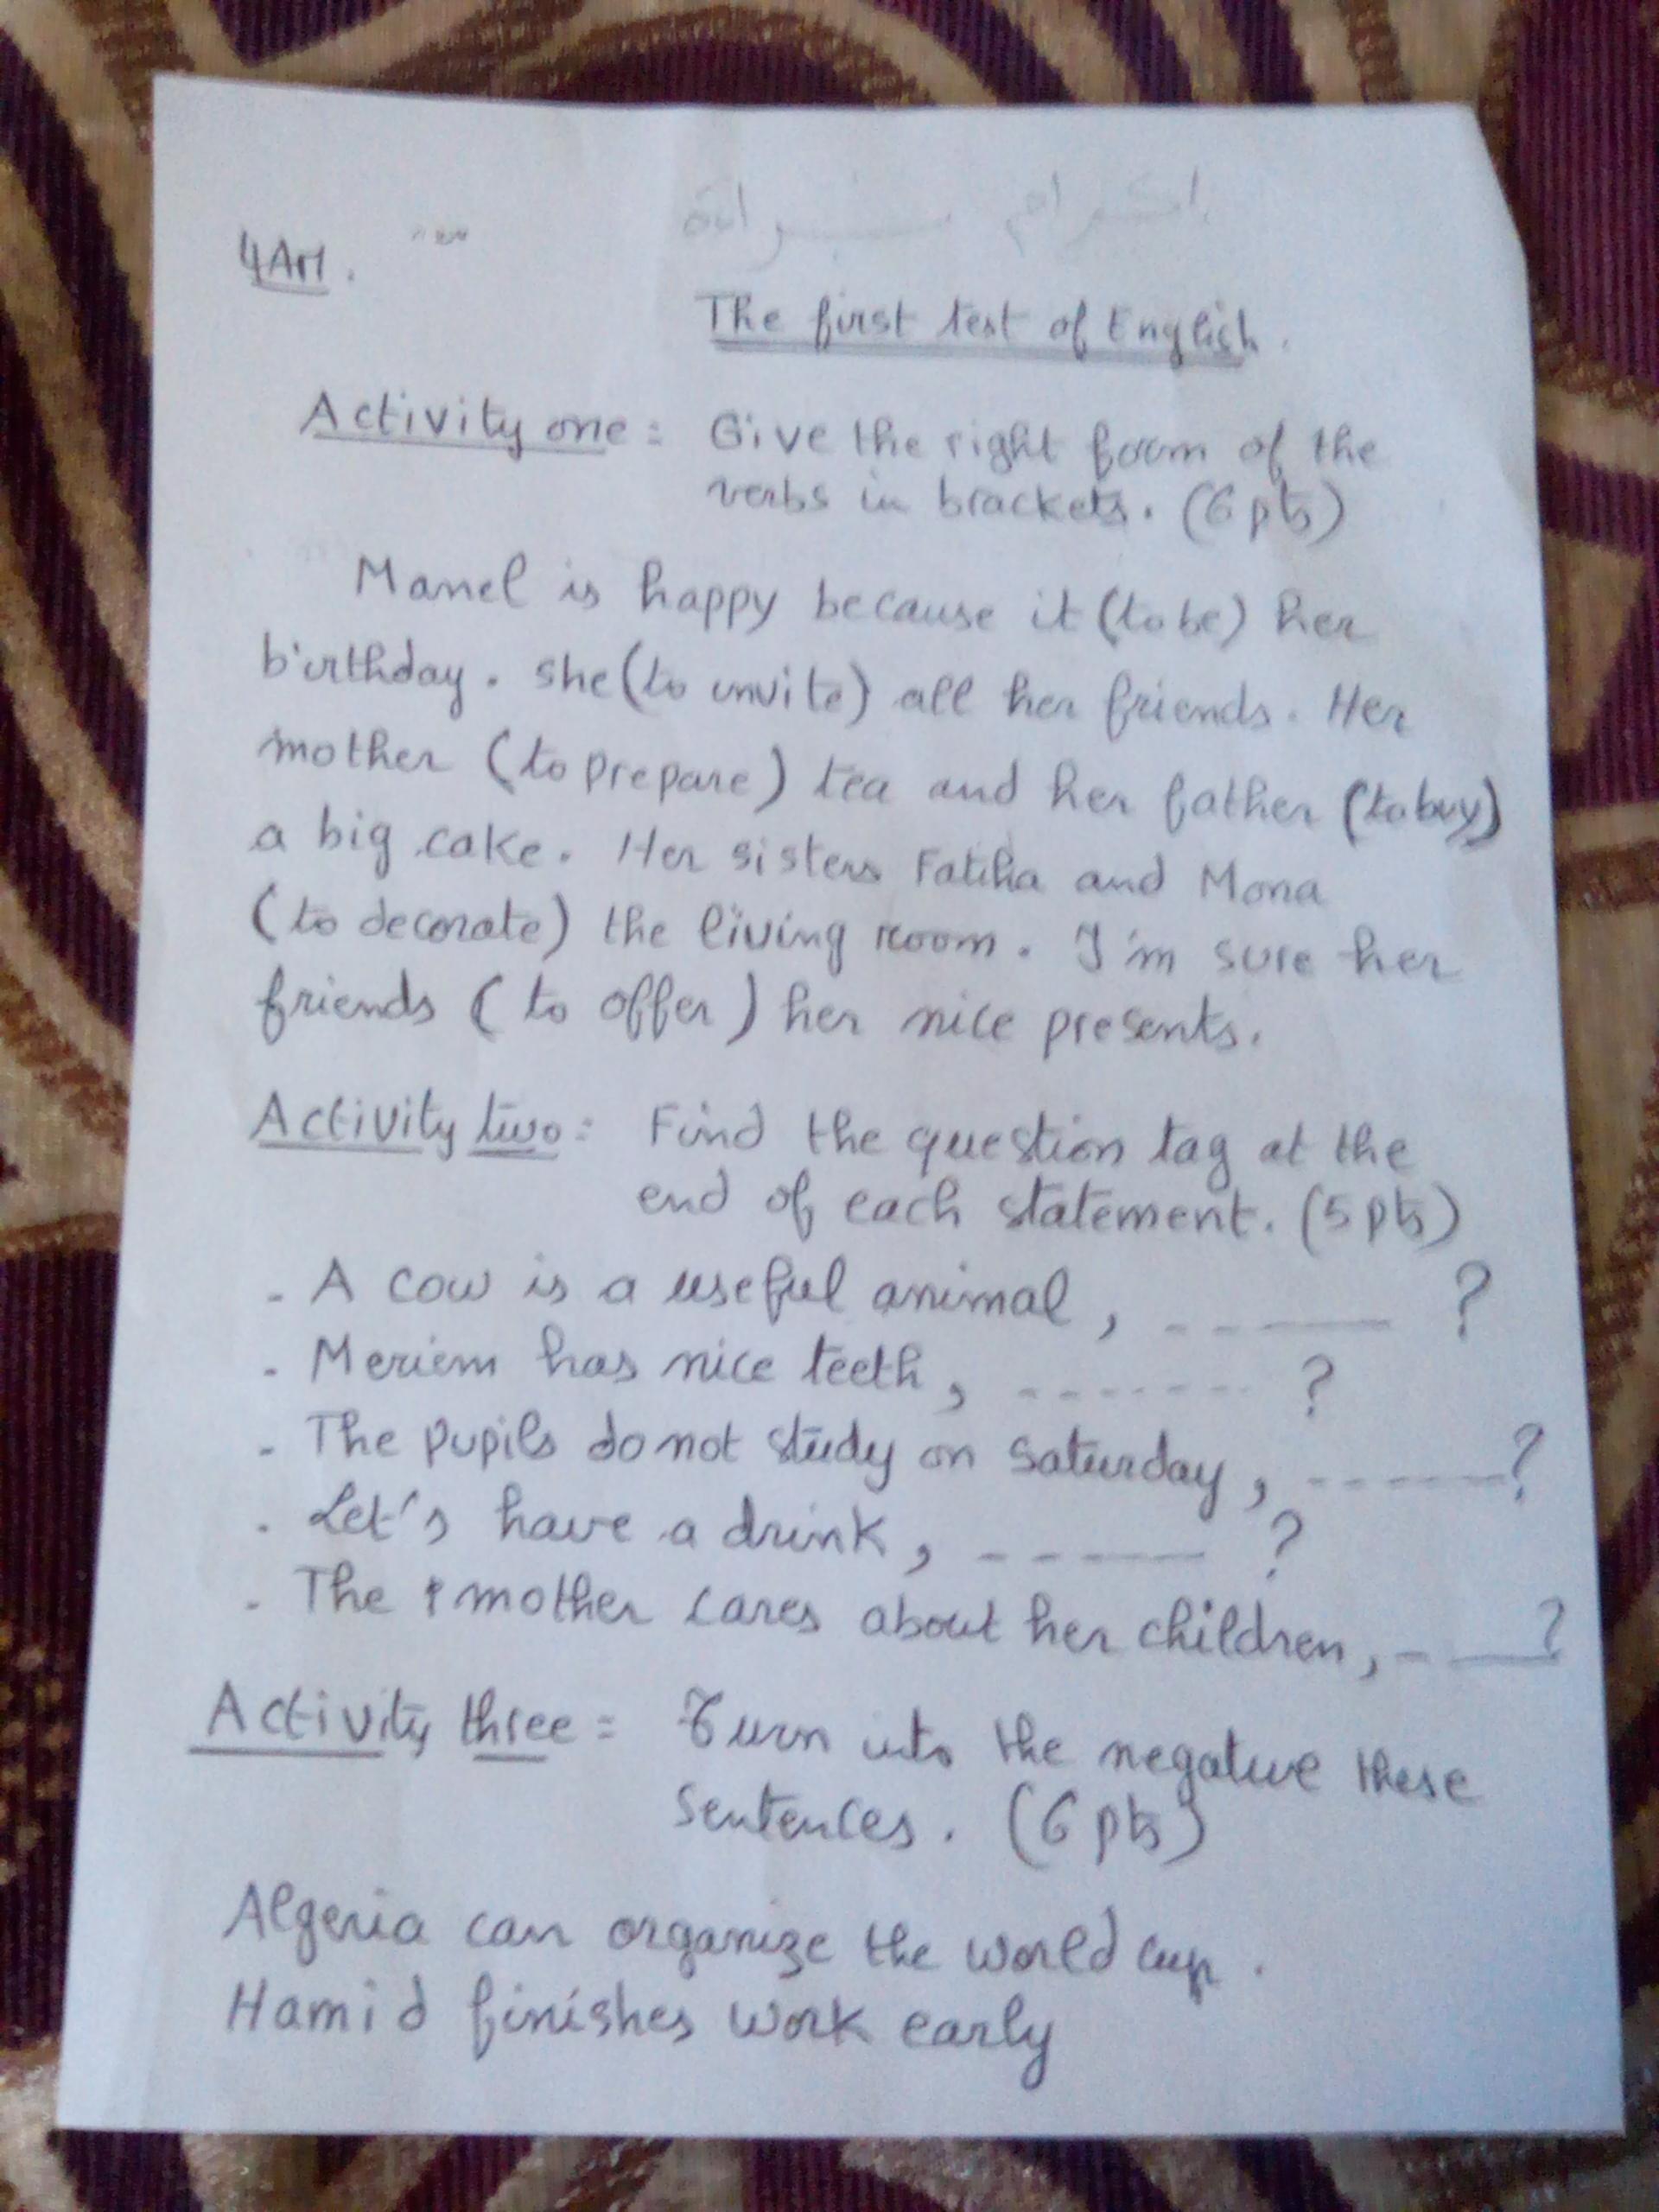 4AM.
The first test of English.
Activity one : Give the right form of the
verbs in brackets. (6 pts)
Manel is happy because it (to be) her
birthday. she (to invite) all her friends. Her
mother (to prepare) tea and her father (to buy)
a big cake. Her sisters Fatiha and Mona
(to decorate) the living room. I'm sure her
friends ( to offer ) her nice presents.
Activity two : Find the question tag at the
end of each statement. (5 pts)
- A cow is a useful animal, _ _ ____ ?
- Meriem has nice teeth, - - - - - - - ?
- The pupils do not study on Saturday, - - - - - __?
. Let's have a drink, - - - ___ ?
- The mother cares about her children, - ___?
Activity three = Turn into the negative these
sentences. (6 pts)
Algeria can organize the world cup.
Hamid finishes work early